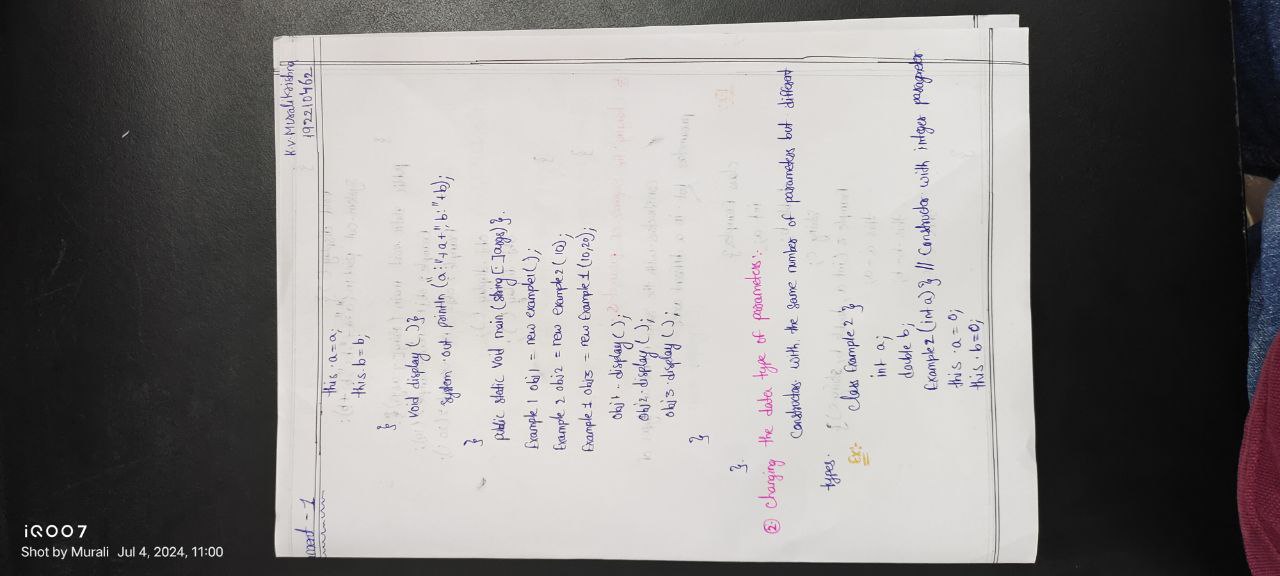 K.V. Muralikrishna
192210462
ment - 1
this.a=a;
this.b=b;
}
void display(){
System.out.println("a:"+a+", b:"+b);
}
public static void main (string []args){.
Example 1 obj1 = new example1();
Example 2 obj2 = new example 2 (10);
Example 1 obj3 = new Example 1 (10,20);
obj1.display();
obj2.display();
obj3.display();
}
}.
② Changing the data type of parameters:
Constructors with the same number of parameters but different
types.
Ex:- class Example 2 {
int a;
double b;
Example 2 (int a) { // Constructor with integer parameter
this.a=a;
this.b=0;
iQOO7
Shot by Murali Jul 4, 2024, 11:00